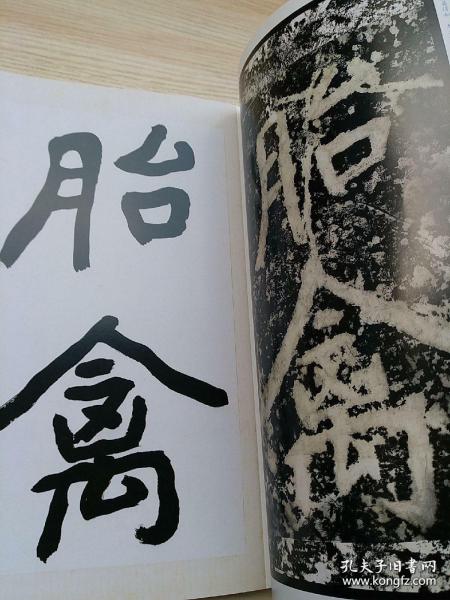 胎
禽
胎
禽
孔夫子旧书网
www.kongfz.com